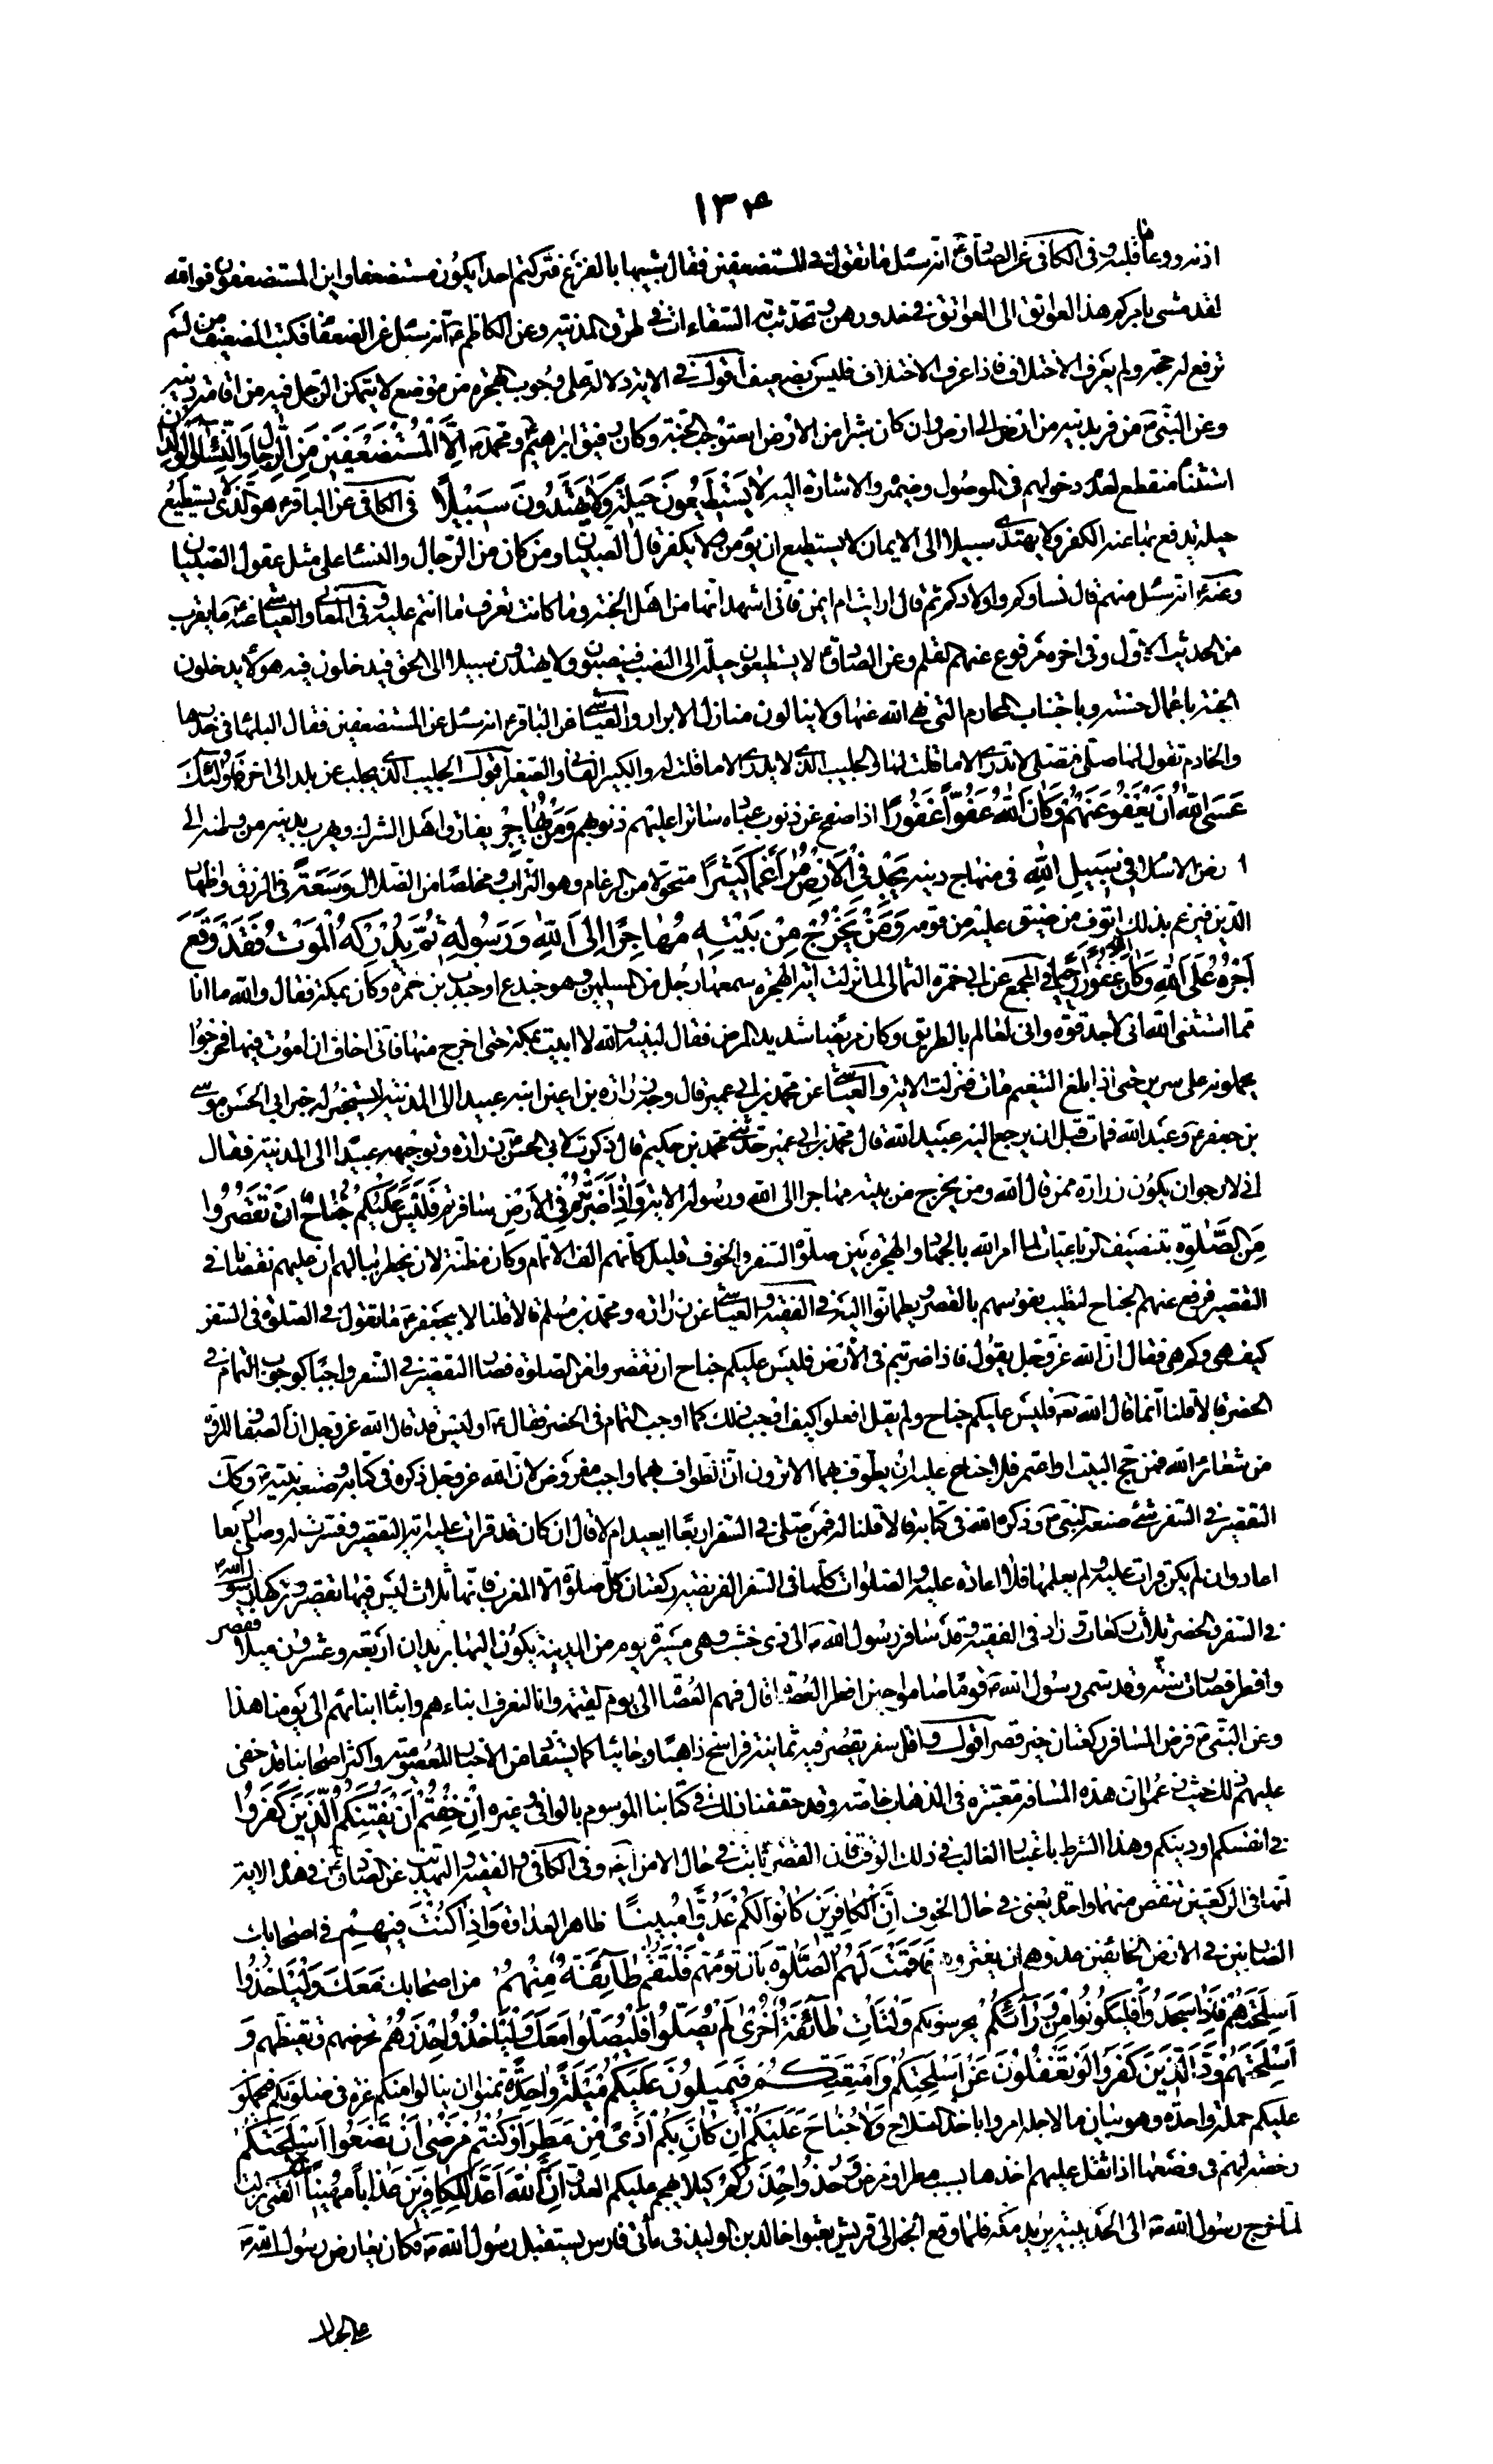 ١٣٤
اذنه ووعاه قلبه وفى الكافى عن الصادق ع انه سئل ما تقول فى المستضعفين فقال شبيها بالفزع فتركتم احدا يكون مستضعفا واين المستضعفون فوالله
لقد مشى بامركم هذا العواتق الى العواتق فى خدورهن وتحدثت به السقاءات فى طرق المدينة وعن الكاظم ع انه سئل عن الضعفاء فكتب الضعيف من لم
ترفع له حجة ولم يعرف الاختلاف فاذا عرف الاختلاف فليس بضعيف اقول فى الاية دلالة على وجوب الهجرة من موضع لا يتمكن الرجل فيه من اقامة دينه
وعن النبى ص من فر بدينه من ارض الى ارض وان كان شبرا من الارض استوجب الجنة وكان رفيق ابراهيم ومحمد ص اِلَّا الْمُسْتَضْعَفينَ مِنَ الرِّجالِ وَالنِّساءِ وَالْوِلْدانِ
استثناء منقطع لعدم دخولهم فى الموصول وضميره والاشارة اليه لا يَسْتَطيعُونَ حيلَةً وَلا يَهْتَدُونَ سَبيلًا فى الكافى عن الباقر ع هو الذى لا يستطيع
حيلة يدفع بها عنه الكفر ولا يهتدى سبيلا الى الايمان لا يستطيع ان يؤمن ولا يكفر قال الصبيان ومن كان من الرجال والنساء على مثل عقول الصبيان
وعنه ع انه سئل منهم قال نساؤكم واولادكم ثم قال ارايت ام ايمن فانى اشهد انها من اهل الجنة وما كانت تعرف ما انتم عليه وفى المعانى والعياشى عنه ع ما يقرب
من الحديث الاول وفى اخره مرفوع عنهم القلم وعن الصادق ع لا يستطيعون حيلة الى النصب فينصبون ولا يهتدون سبيلا الى الحق فيدخلون فيه هؤلاء يدخلون
الجنة باعمال حسنة وباجتناب المحارم التى نهى الله عنها ولا ينالون منازل الابرار والعياشى عن الباقر ع انه سئل عن المستضعفين فقال البلهاء فى خدرها
والخادم تقول لها صلى فتصلى لا تدرى الا ما قلت لها والجليب الذى لا يدرى الا ما قلت له والكبير الفانى والصغير اقول الجليب الذى يجلب من بلد الى اخر فَاُولئِكَ
عَسَى اللّهُ اَنْ يَعْفُوَ عَنْهُمْ وَكانَ اللّهُ عَفُوًّا غَفُورًا ذا صفح عن ذنوب عباده ساترا عليهم ذنوبهم وَمَنْ يُهاجِرْ يفارق اهل الشرك ويهرب بدينه من وطنه الى
ارض الاسلام فى سَبيلِ اللّهِ فى منهاج دينه يَجِدْ فِى الْاَرْضِ مُراغَمًا كَثيرًا متحولا من الرغام وهو التراب ومخلصا من الضلال وَسَعَةً فى الرزق واظهار
الدين فيرغم بذلك انوف من ضيق عليه من قومه وَمَنْ يَخْرُجْ مِنْ بَيْتِه مُهاجِرًا اِلَى اللّهِ وَرَسُولِه ثُمَّ يُدْرِكْهُ الْمَوْتُ فَقَدْ وَقَعَ
اَجْرُهُ عَلَى اللّهِ وَكانَ اللّهُ غَفُورًا رَحيمًا فى المجمع عن ابى حمزة الثمالى لما نزلت اية الهجرة سمعها رجل من المسلمين وهو جندع او جندب بن ضمرة وكان بمكة فقال والله ما انا
مما استثنى الله انى لاجد قوة وانى لعالم بالطريق وكان مريضا شديد المرض فقال لبنيه والله لا ابيت بمكة حتى اخرج منها فانى اخاف ان اموت فيها فخرجوا
يحملونه على سرير حتى اذا بلغ التنعيم مات فنزلت الاية والعياشى عن محمد بن ابى عمير قال وجه زرارة بن اعين ابنه عبيدا الى المدينة ليستخبر له خبر ابى الحسن موسى
بن جعفر ع وعبد الله فمات قبل ان يرجع اليه عبيد الله قال محمد بن ابى عمير حدثنى محمد بن حكيم قال ذكرت لابى الحسن ع زرارة وتوجيهه عبيدا الى المدينة فقال
انى لارجو ان يكون زرارة ممن قال الله ومن يخرج من بيته مهاجرا الى الله ورسوله الاية وَاِذا ضَرَبْتُمْ فِى الْاَرْضِ سافرتم فَلَيْسَ عَلَيْكُمْ جُناحٌ اَنْ تَقْصُرُوا
مِنَ الصَّلوةِ بتنصيف الرباعيات لما امر الله بالجهاد والهجرة بين صلوة السفر والخوف قيل كانهم الفوا الاتمام وكان مظنة لان يخطر ببالهم ان عليهم نقصانا فى
التقصير فرفع عنهم الجناح لتطيب نفوسهم بالقصر ويطمانوا اليه فى الفقيه والعياشى عن زرارة ومحمد بن مسلم قالا قلنا لابى جعفر ع ما تقول فى الصلوة فى السفر
كيف هى وكم هى فقال ان الله عز وجل يقول فاذا ضربتم فى الارض فليس عليكم جناح ان تقصروا من الصلوة فصار التقصير فى السفر واجبا كوجوب التمام فى
الحضر قالا قلنا انما قال الله تع فليس عليكم جناح ولم يقل افعلوا كيف اوجب ذلك كما اوجب التمام فى الحضر فقال ع اوليس قد قال الله عز وجل ان الصفا والمروة
من شعائر الله فمن حج البيت او اعتمر فلا جناح عليه ان يطوف بهما الا ترون ان الطواف بهما واجب مفروض لان الله عز وجل ذكره فى كتابه وصنعه نبيه ص وكذلك
التقصير فى السفر شئ صنعه النبى ص وذكره الله فى كتابه قالا قلنا له فمن صلى فى السفر اربعا ايعيد ام لا قال ان كان قد قرات عليه اية التقصير وفسرت له وصلى اربعا
اعاد وان لم يكن قرات عليه ولم يعلمها فلا اعادة عليه والصلوات كلها فى السفر الفريضة ركعتان كل صلوة الا المغرب فانها ثلاث ليس فيها تقصير تركها رسول الله ص
فى السفر والحضر ثلاث ركعات وزاد فى الفقيه وقد سافر رسول الله ص الى ذى خشب وهى مسيرة يوم من المدينة يكون اليها بريدان اربعة وعشرون ميلا فقصر
وافطر فصارت سنة وقد سمى رسول الله ص قوما صاموا حين افطر العصاة قال فهم العصاة الى يوم القيمة وانا لنعرف ابناءهم وابناء ابنائهم الى يومنا هذا
وعن النبى ص فرض المسافر ركعتان غير قصر اقول واقل سفر يقصر فيه ثمانية فراسخ ذاهبا وجائيا كما يستفاد من الاخبار المعصومية واكثر اصحابنا قد خفى
عليهم ذلك حيث زعموا ان هذه المسافة معتبرة فى الذهاب خاصة وقد حققنا ذلك فى كتابنا الموسوم بالوافى وغيره اِنْ خِفْتُمْ اَنْ يَفْتِنَكُمُ الَّذينَ كَفَرُوا
فى انفسكم او دينكم وهذا الشرط باعتبار الغالب فى ذلك الوقت فان القصر ثابت فى حال الامن ايضا وفى الكافى والفقيه والتهذيب عن الصادق ع فى هذه الاية
انها فى الركعتين تنقص منهما واحدة يعنى فى حال الخوف اِنَّ الْكافِرينَ كانُوا لَكُمْ عَدُوًّا مُبينًا ظاهر العداوة وَاِذا كُنْتَ فيهِمْ فى اصحابك
الضاربين فى الارض الخائفين عدوهم ان يغتروهم فَاَقَمْتَ لَهُمُ الصَّلوةَ بان تؤمهم فَلْتَقُمْ طائِفَةٌ مِنْهُمْ من اصحابك مَعَكَ وَلْيَاْخُذُوا
اَسْلِحَتَهُمْ فَاِذا سَجَدُوا فَلْيَكُونُوا مِنْ وَرائِكُمْ يحرسونكم وَلْتَاْتِ طائِفَةٌ اُخْرى لَمْ يُصَلُّوا فَلْيُصَلُّوا مَعَكَ وَلْيَاْخُذُوا حِذْرَهُمْ تحرزهم وتيقظهم وَ
اَسْلِحَتَهُمْ وَدَّ الَّذينَ كَفَرُوا لَوْ تَغْفُلُونَ عَنْ اَسْلِحَتِكُمْ وَاَمْتِعَتِكُمْ فَيَميلُونَ عَلَيْكُمْ مَيْلَةً واحِدَةً تمنوا ان ينالوا منكم غرة فى صلوتكم فيحملوا
عليكم حملة واحدة وهو بيان ما لاجله امروا باخذ السلاح وَلا جُناحَ عَلَيْكُمْ اِنْ كانَ بِكُمْ اَذًى مِنْ مَطَرٍ اَوْ كُنْتُمْ مَرْضى اَنْ تَضَعُوا اَسْلِحَتَكُمْ
رخصة لهم فى وضعها اذا ثقل عليهم اخذها بسبب مطر او مرض وَخُذُوا حِذْرَكُمْ كيلا يهجم عليكم العدو اِنَّ اللّهَ اَعَدَّ لِلْكافِرينَ عَذابًا مُهينًا القمى نزلت
لما خرج رسول الله ص الى الحديبية يريد مكة فلما وقع الخبر الى قريش بعثوا خالد بن الوليد فى مأتى فارس يستقبل رسول الله ص فكان يعارض رسول الله ص
على الجبال